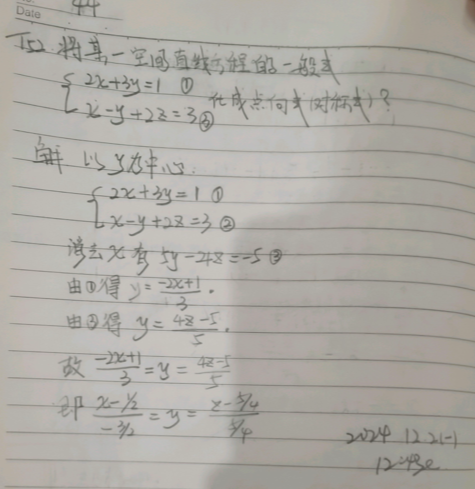 Date 44
T52 将某一空间直线方程的一般式
{ 2x+3y=1 ①
x-y+2z=3 ② 化成点向式(对称式)?
解 以y为中心.
{ 2x+3y=1 ①
x-y+2z=3 ②
消去x有 5y-4z=-5 ③
由①得 y=\frac{-2x+1}{3}.
由③得 y=\frac{4z-5}{5}.
故 \frac{-2x+1}{3}=y=\frac{4z-5}{5}
即 \frac{x-1/2}{-3/2}=y=\frac{z-5/4}{5/4}
2024 12 2(-)